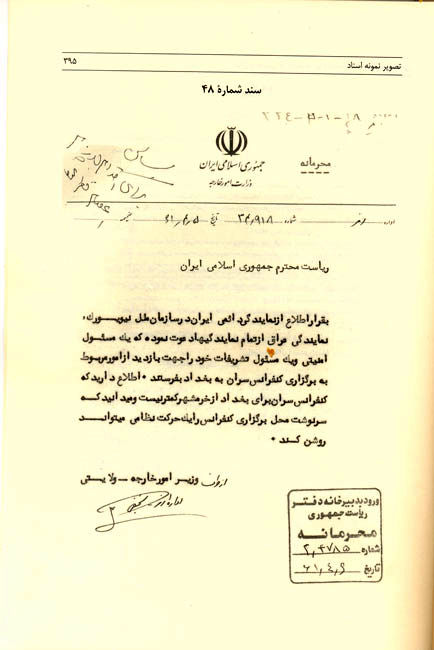 تصویر نمونه اسناد
۳۹۵
سند شمارهٔ ۴۸
جمهوری اسلامی ایران
وزارت امور خارجه
محرمانه
اداره
شماره ۳۴۹۱۸ تاریخ ۶۱/۴/۵
ریاست محترم جمهوری اسلامی ایران
بقرار اطلاع از نمایندگی دائمی ایران در سازمان ملل نیویورک،
نمایندگی عراق از تمام نمایندگیها دعوت نموده که یک مسئول
امنیتی ویک مسئول تشریفات خود را جهت بازدید از امور مربوط
به برگزاری کنفرانس سران به بغداد بفرستند ۰ اطلاع دارید که
کنفرانس سران برای بغداد از خرمشهر کمتر نیست و میدانید که
سرنوشت محل برگزاری کنفرانس را یک حرکت نظامی میتواند
روشن کند ۰
از طرف وزیر امور خارجه - ولایتی
ورود به دبیرخانه دفتر
ریاست جمهوری
محرمانه
شماره ۲،۴۷۸۵
تاریخ ۶۱،۴،۶